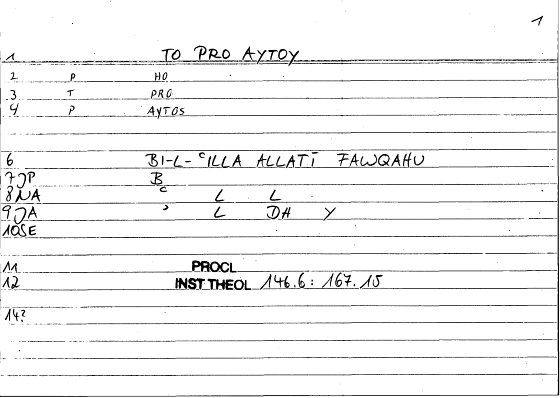 1
1 TO PRO AYTOY
2 P HO
3 T PRO
4 P AYTOS
6 BI-L-CILLA ALLATĪ FAWQAHU
7 JP B
8 NA C L L
9 JA ʾ L DH Y
10 SE
11 PROCL
12 INST THEOL 146.6: 167.15
14?